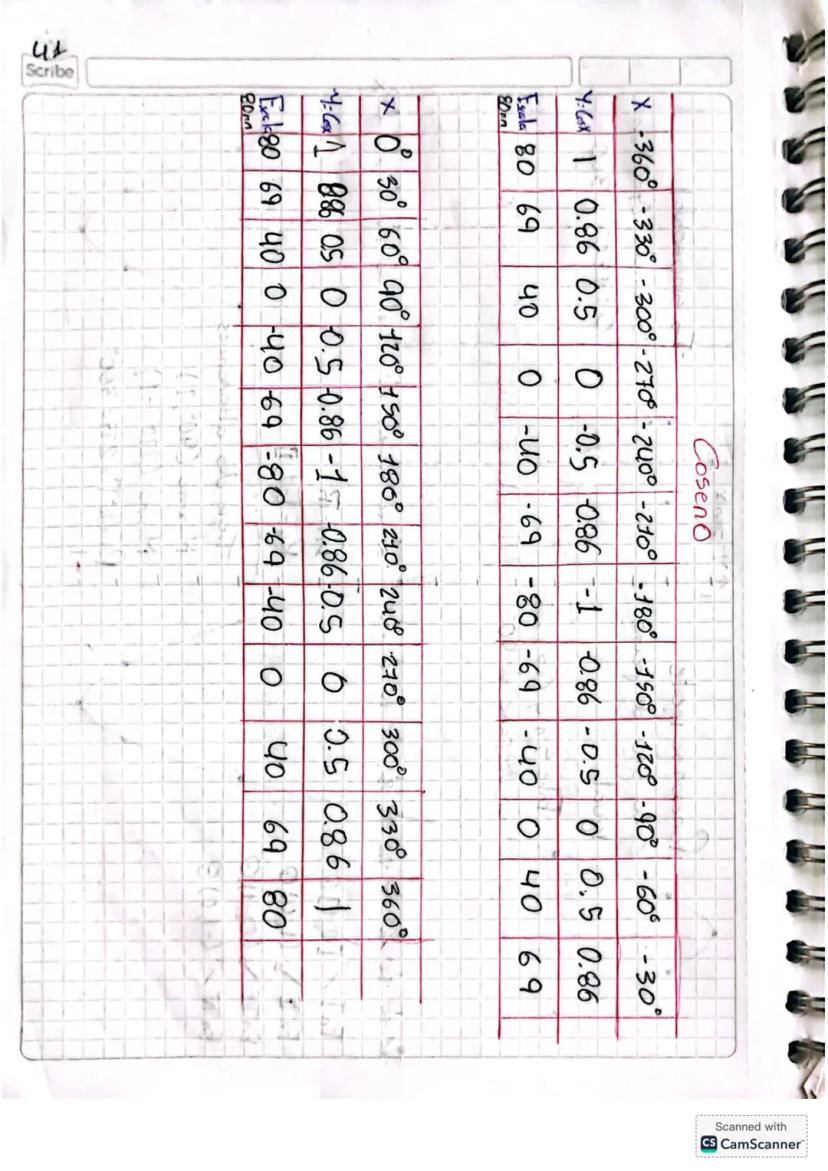 41
Scribe
Coseno
X -360° -330° -300° -270° -240° -210° -180° -150° -120° -90° -60° -30°
Y=Cosx 1 0.86 0.5 0 -0.5 -0.86 -1 -0.86 -0.5 0 0.5 0.86
Escala 80mm 80 69 40 0 -40 -69 -80 -69 -40 0 40 69
X 0° 30° 60° 90° 120° 150° 180° 210° 240° 270° 300° 330° 360°
Y=Cosx 1 0.86 0.5 0 -0.5 -0.86 -1 -0.86 -0.5 0 0.5 0.86 1
Escala 80mm 80 69 40 0 -40 -69 -80 -69 -40 0 40 69 80
Scanned with
CS CamScanner